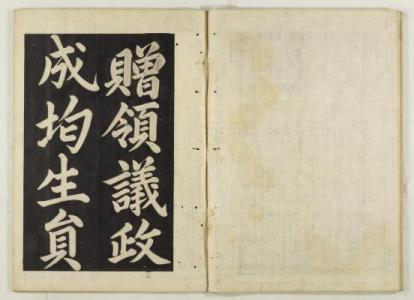 贈領議政
成均生員